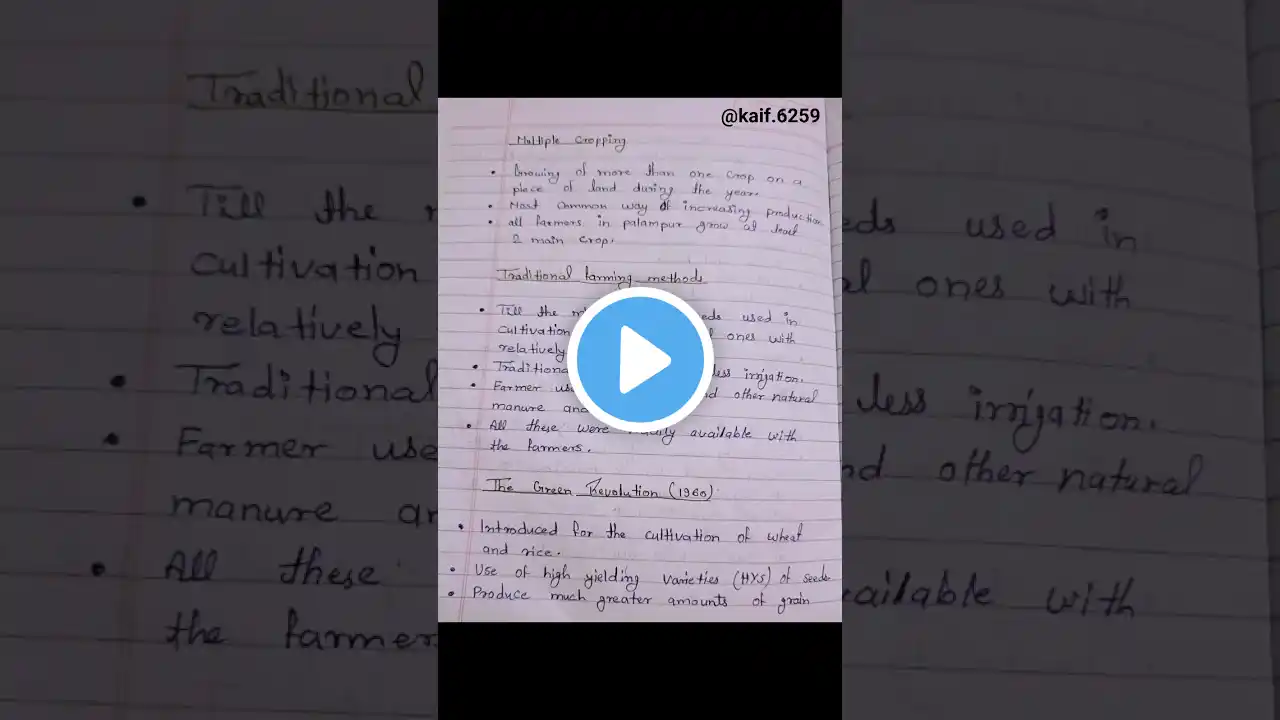 @kaif.6259
Multiple Cropping
• Growing of more than one crop on a
piece of land during the year.
• Most common way of increasing production
• all farmers in palampur grow at least
2 main crop.
Traditional farming methods
• Till the used in
cultivation ones with
relatively
• Traditional less irrigation.
• Farmer other natural
manure
• All these were available with
the farmers.
The Green Revolution (1960)
• Introduced for the cultivation of wheat
and rice.
• Use of high yielding varieties (HYS) of seeds
• Produce much greater amounts of grain